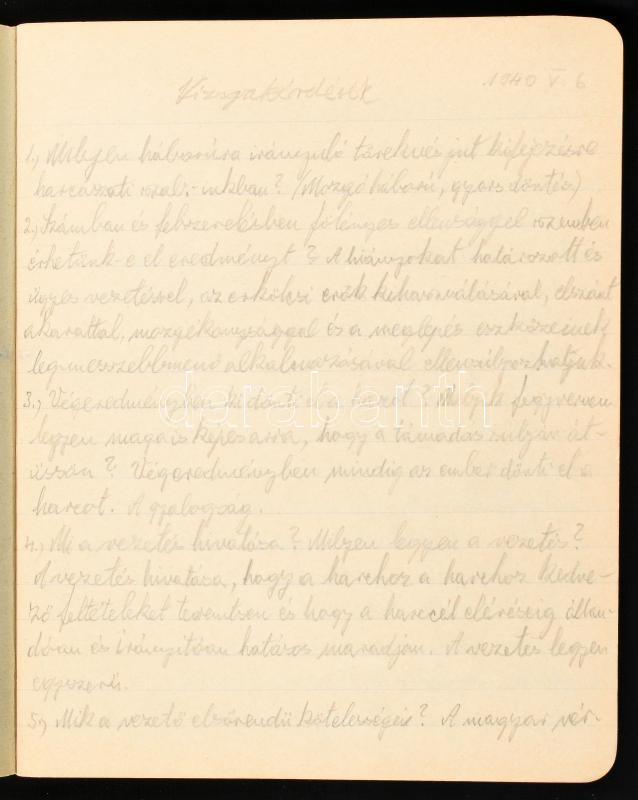 Vizsgakérdések
1940 V. 6
1.) Milyen háborúra irányuló törekvés jut kifejezésre
harcászati szab.-inkban? (Mozgó háború, gyors döntés)
2.) Számban és felszerelésben fölényes ellenséggel szemben
érhetünk-e el eredményt? A hiányokat határozott és
ügyes vezetéssel, az erkölcsi erők kihasználásával, elszánt
akarattal, mozgékonysággal és a meglepés eszközeinek
legmesszebbmenő alkalmazásával ellensúlyozhatjuk.
3.) Végeredményben ki dönti el a harcot? Melyik fegyvernem
legyen maga is képes arra, hogy a támadás súlyán át-
üssön? Végeredményben mindig az ember dönti el a
harcot. A gyalogság.
4.) Mi a vezetés hivatása? Milyen legyen a vezetés?
A vezetés hivatása, hogy a harchoz a harchoz kedve-
ző feltételeket teremtsen és hogy a harccél eléréséig állan-
dóan és irányítóan hatásos maradjon. A vezetés legyen
egyszerű.
5.) Mik a vezető elsőrendű kötelességei? A magyar vér-
darabanth